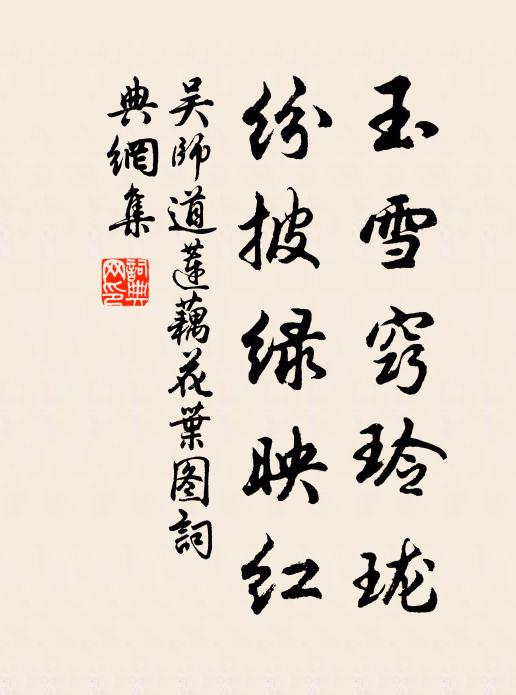 玉雪窍玲珑
纷披绿映红
吴师道莲藕花葉图詞
典網集
詞典网印